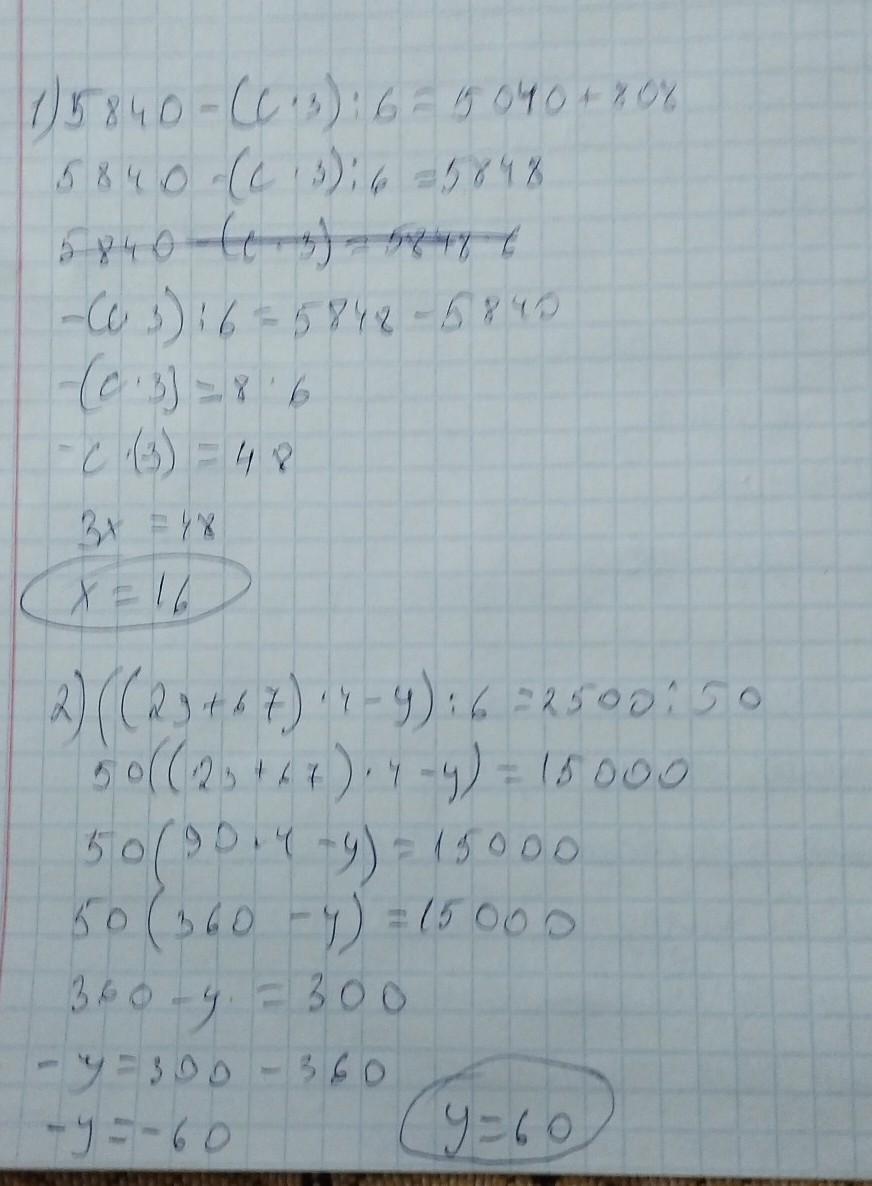 1) 5840 - (c · 3) : 6 = 5040 + 808
5840 - (c · 3) : 6 = 5848
5840 - (c · 3) = 5848 6
-(c · 3) : 6 = 5848 - 5840
-(c · 3) = 8 · 6
-c · (3) = 48
3x = 48
x = 16
2) ((23 + 67) · 4 - y) : 6 = 2500 : 50
50((23 + 67) · 4 - y) = 15000
50(90 · 4 - y) = 15000
50(360 - y) = 15000
360 - y = 300
-y = 300 - 360
-y = -60
y = 60